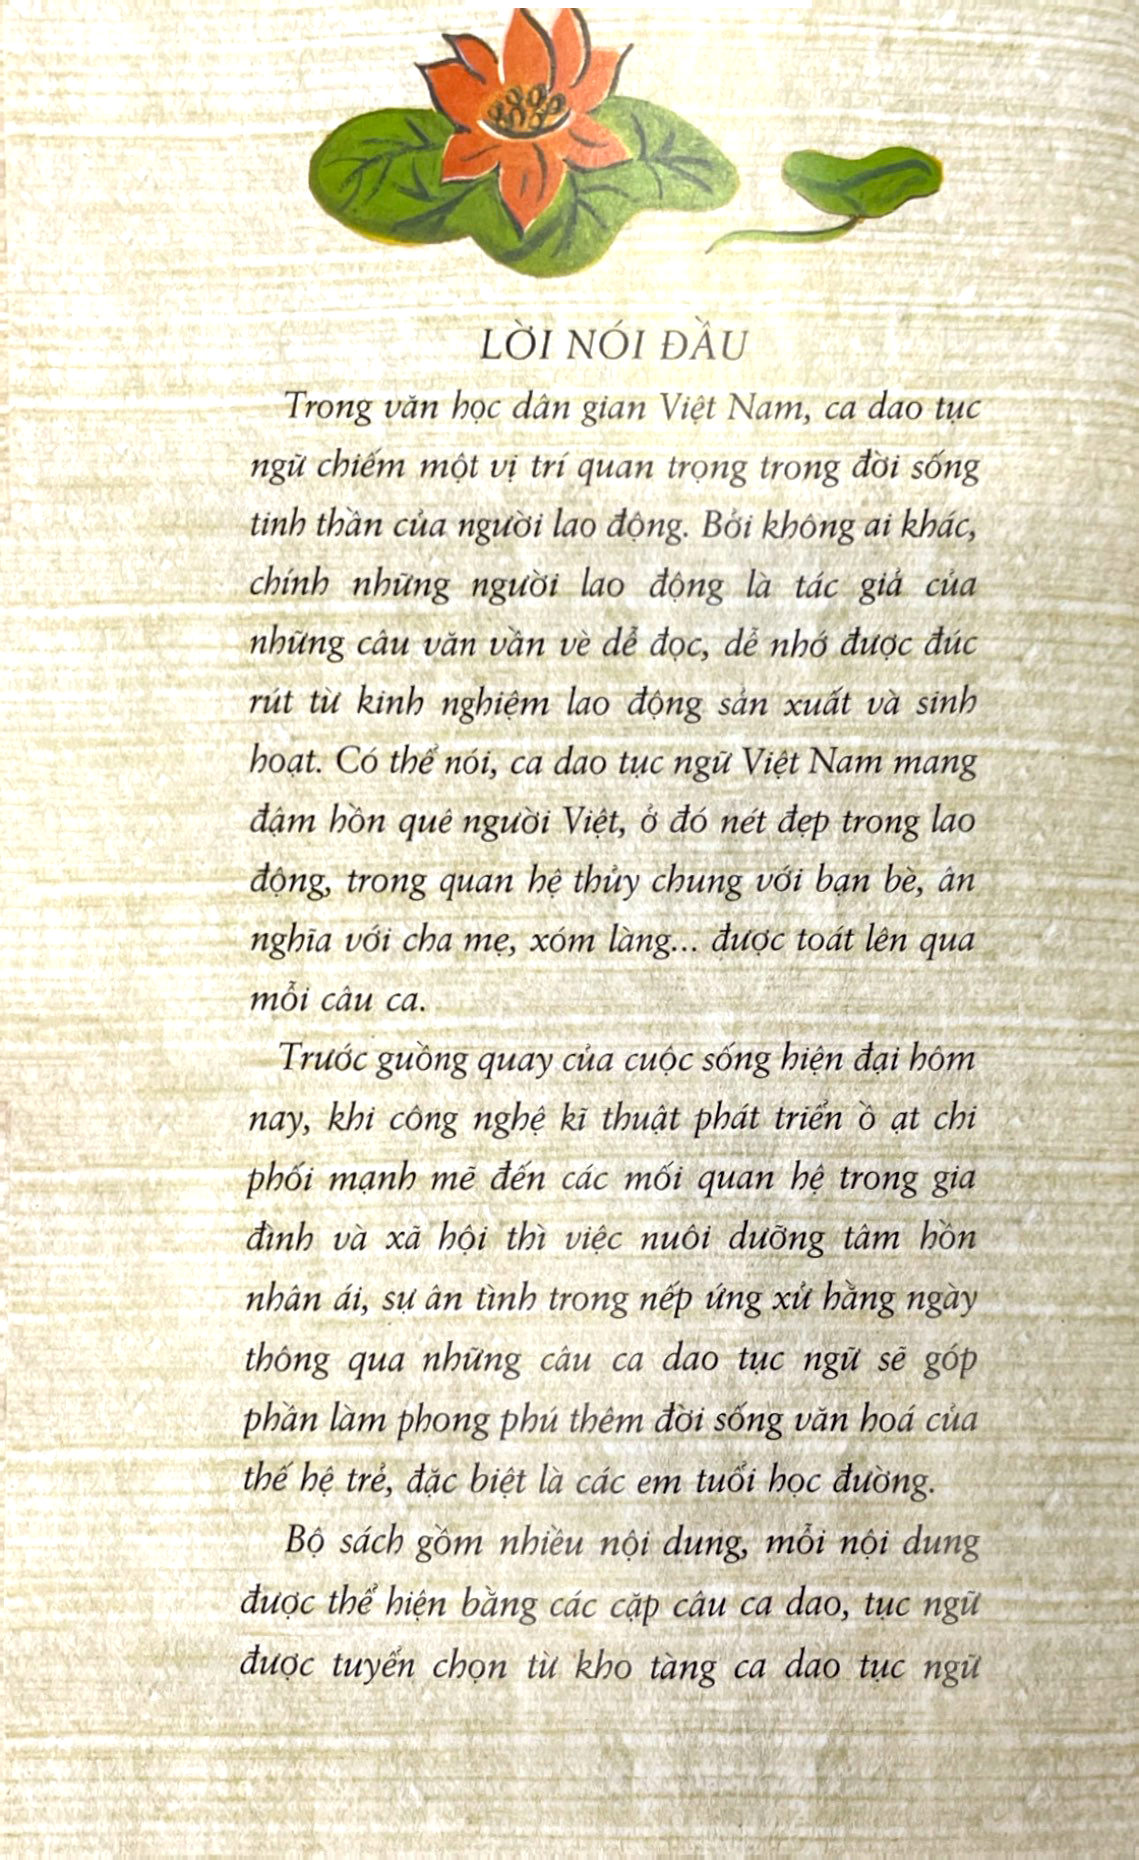 LỜI NÓI ĐẦU
Trong văn học dân gian Việt Nam, ca dao tục
ngữ chiếm một vị trí quan trọng trong đời sống
tinh thần của người lao động. Bởi không ai khác,
chính những người lao động là tác giả của
những câu văn vần vè dễ đọc, dễ nhớ được đúc
rút từ kinh nghiệm lao động sản xuất và sinh
hoạt. Có thể nói, ca dao tục ngữ Việt Nam mang
đậm hồn quê người Việt, ở đó nét đẹp trong lao
động, trong quan hệ thủy chung với bạn bè, ân
nghĩa với cha mẹ, xóm làng... được toát lên qua
mỗi câu ca.
Trước guồng quay của cuộc sống hiện đại hôm
nay, khi công nghệ kĩ thuật phát triển ồ ạt chi
phối mạnh mẽ đến các mối quan hệ trong gia
đình và xã hội thì việc nuôi dưỡng tâm hồn
nhân ái, sự ân tình trong nếp ứng xử hằng ngày
thông qua những câu ca dao tục ngữ sẽ góp
phần làm phong phú thêm đời sống văn hoá của
thế hệ trẻ, đặc biệt là các em tuổi học đường.
Bộ sách gồm nhiều nội dung, mỗi nội dung
được thể hiện bằng các cặp câu ca dao, tục ngữ
được tuyển chọn từ kho tàng ca dao tục ngữ